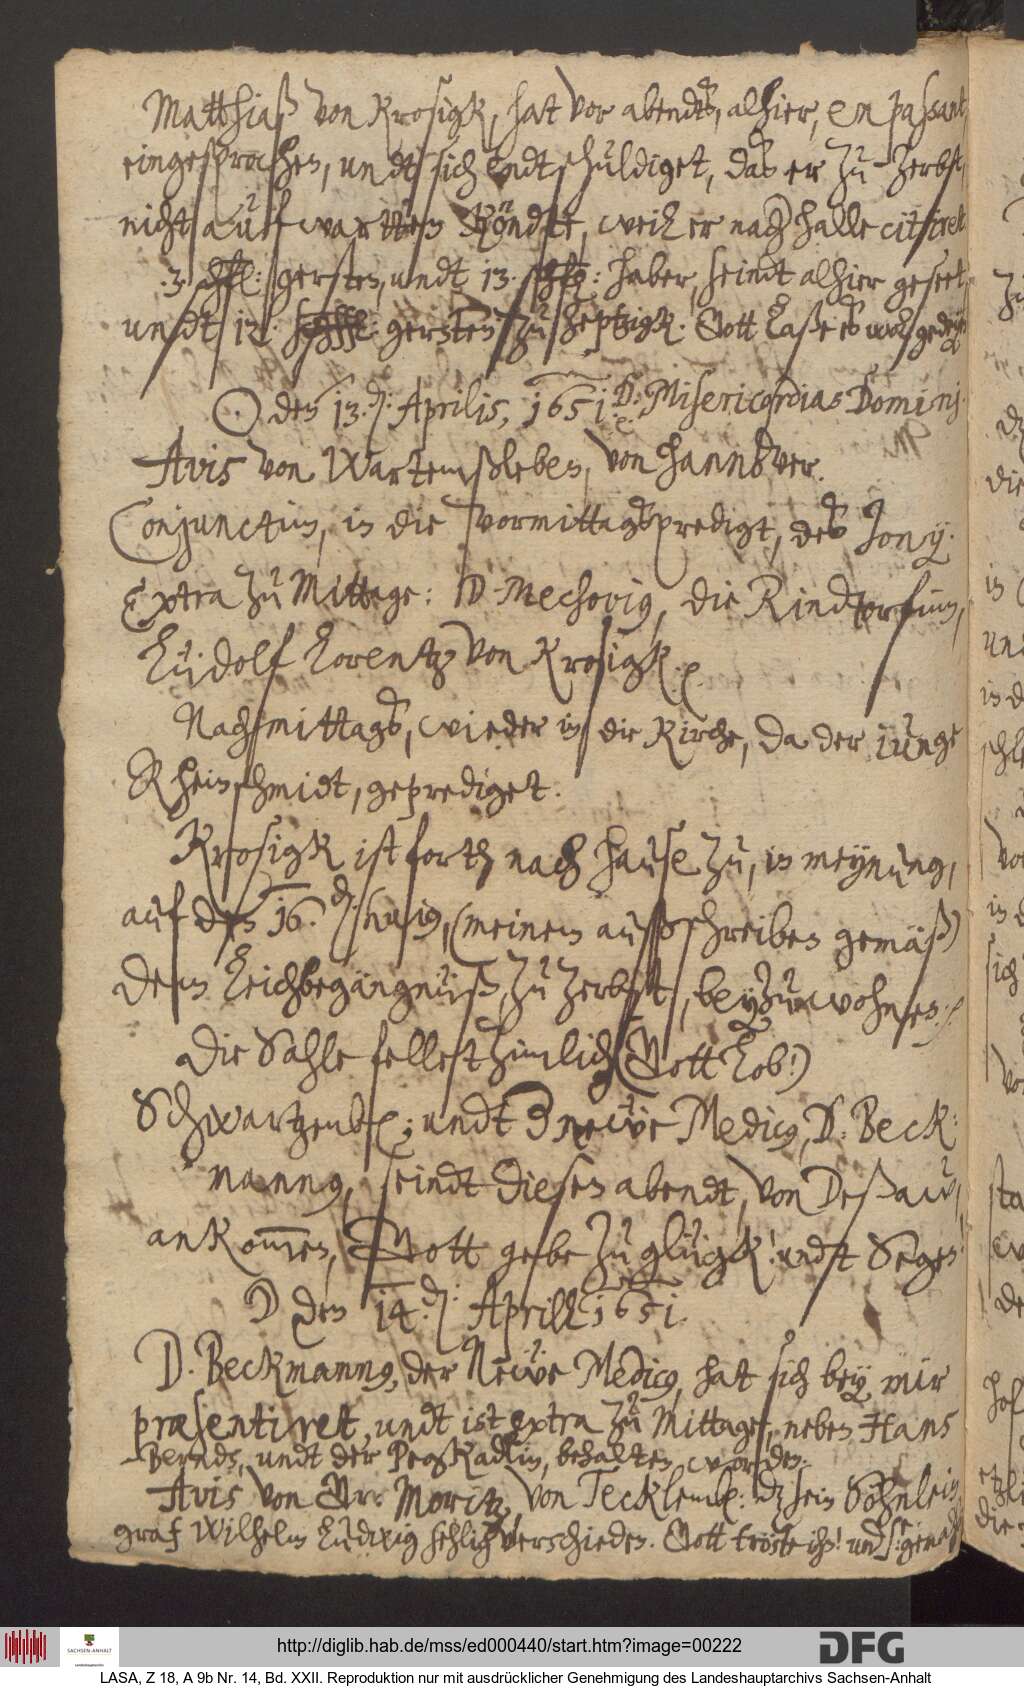 Matthiaß von Krosigk, hat vor abendts, alhier, en passant
eingesprochen, undt sich endtschuldiget, das er zu Zerbst,
nicht aufwartten köndte, weil er nach Halle citiret
.3 schfl: gersten, undt 13. schfl: haber, seindt alhier geseet,
undt 12. schfl: gersten zu Zeptzigk. Gott laße es wol gedeyen
☉ den 13. den: Aprilis, 1651. D: Misericordias Dominj.
Avis von Wartemßleben, von Hannover.
Conjunctim, in die vormittagspredigt, des Jonij.
Extra zu Mittage: D. Mechovius, die Rindtorfinn,
Ludolf Lorentz von Krosigk.
Nachmittags, wieder in die Kirche, da der junge
Rheinschmidt, geprediget.
Krosigk ist forth nach hause zu, in meynung,
auf den 16. den: huius, (meinem außschreiben gemäß)
dem Leichbegängnüß, zu Zerbst, beyzuwohnen.
Die Sahle fellet zimlich (Gott Lob!)
Schwartzenberger undt der neue Medicus, D. Beck-
mannus, seindt diesen abendt, von Deßaw,
ankommen, Gott gebe zu glügk! undt Segen!
☽ den 14. den: Aprill 1651.
D. Beckmannus, der Neue Medicus, hat sich bey mir
præsentiret, undt ist extra zu Mittage, neben Hans
Bernds, undt der behalten worden.
Avis von Gr: Moritz, von Tecklemb: daß sein Söhnlein
graf Wilhelm Ludwig sehlich verschieden. Gott tröste ihn! und
http://diglib.hab.de/mss/ed000440/start.htm?image=00222
SACHSEN-ANHALT
DFG
LASA, Z 18, A 9b Nr. 14, Bd. XXII. Reproduktion nur mit ausdrücklicher Genehmigung des Landeshauptarchivs Sachsen-Anhalt